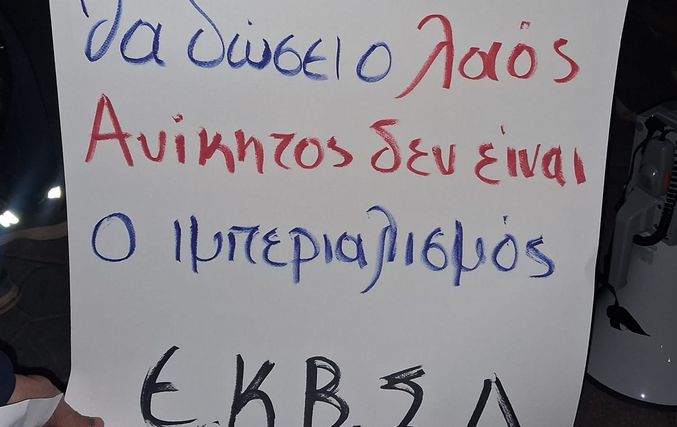 θα δώσει ο λαός
Ανίκητος δεν είναι
Ο ιμπεριαλισμός
Ε.Κ.Β.Σ.Λ